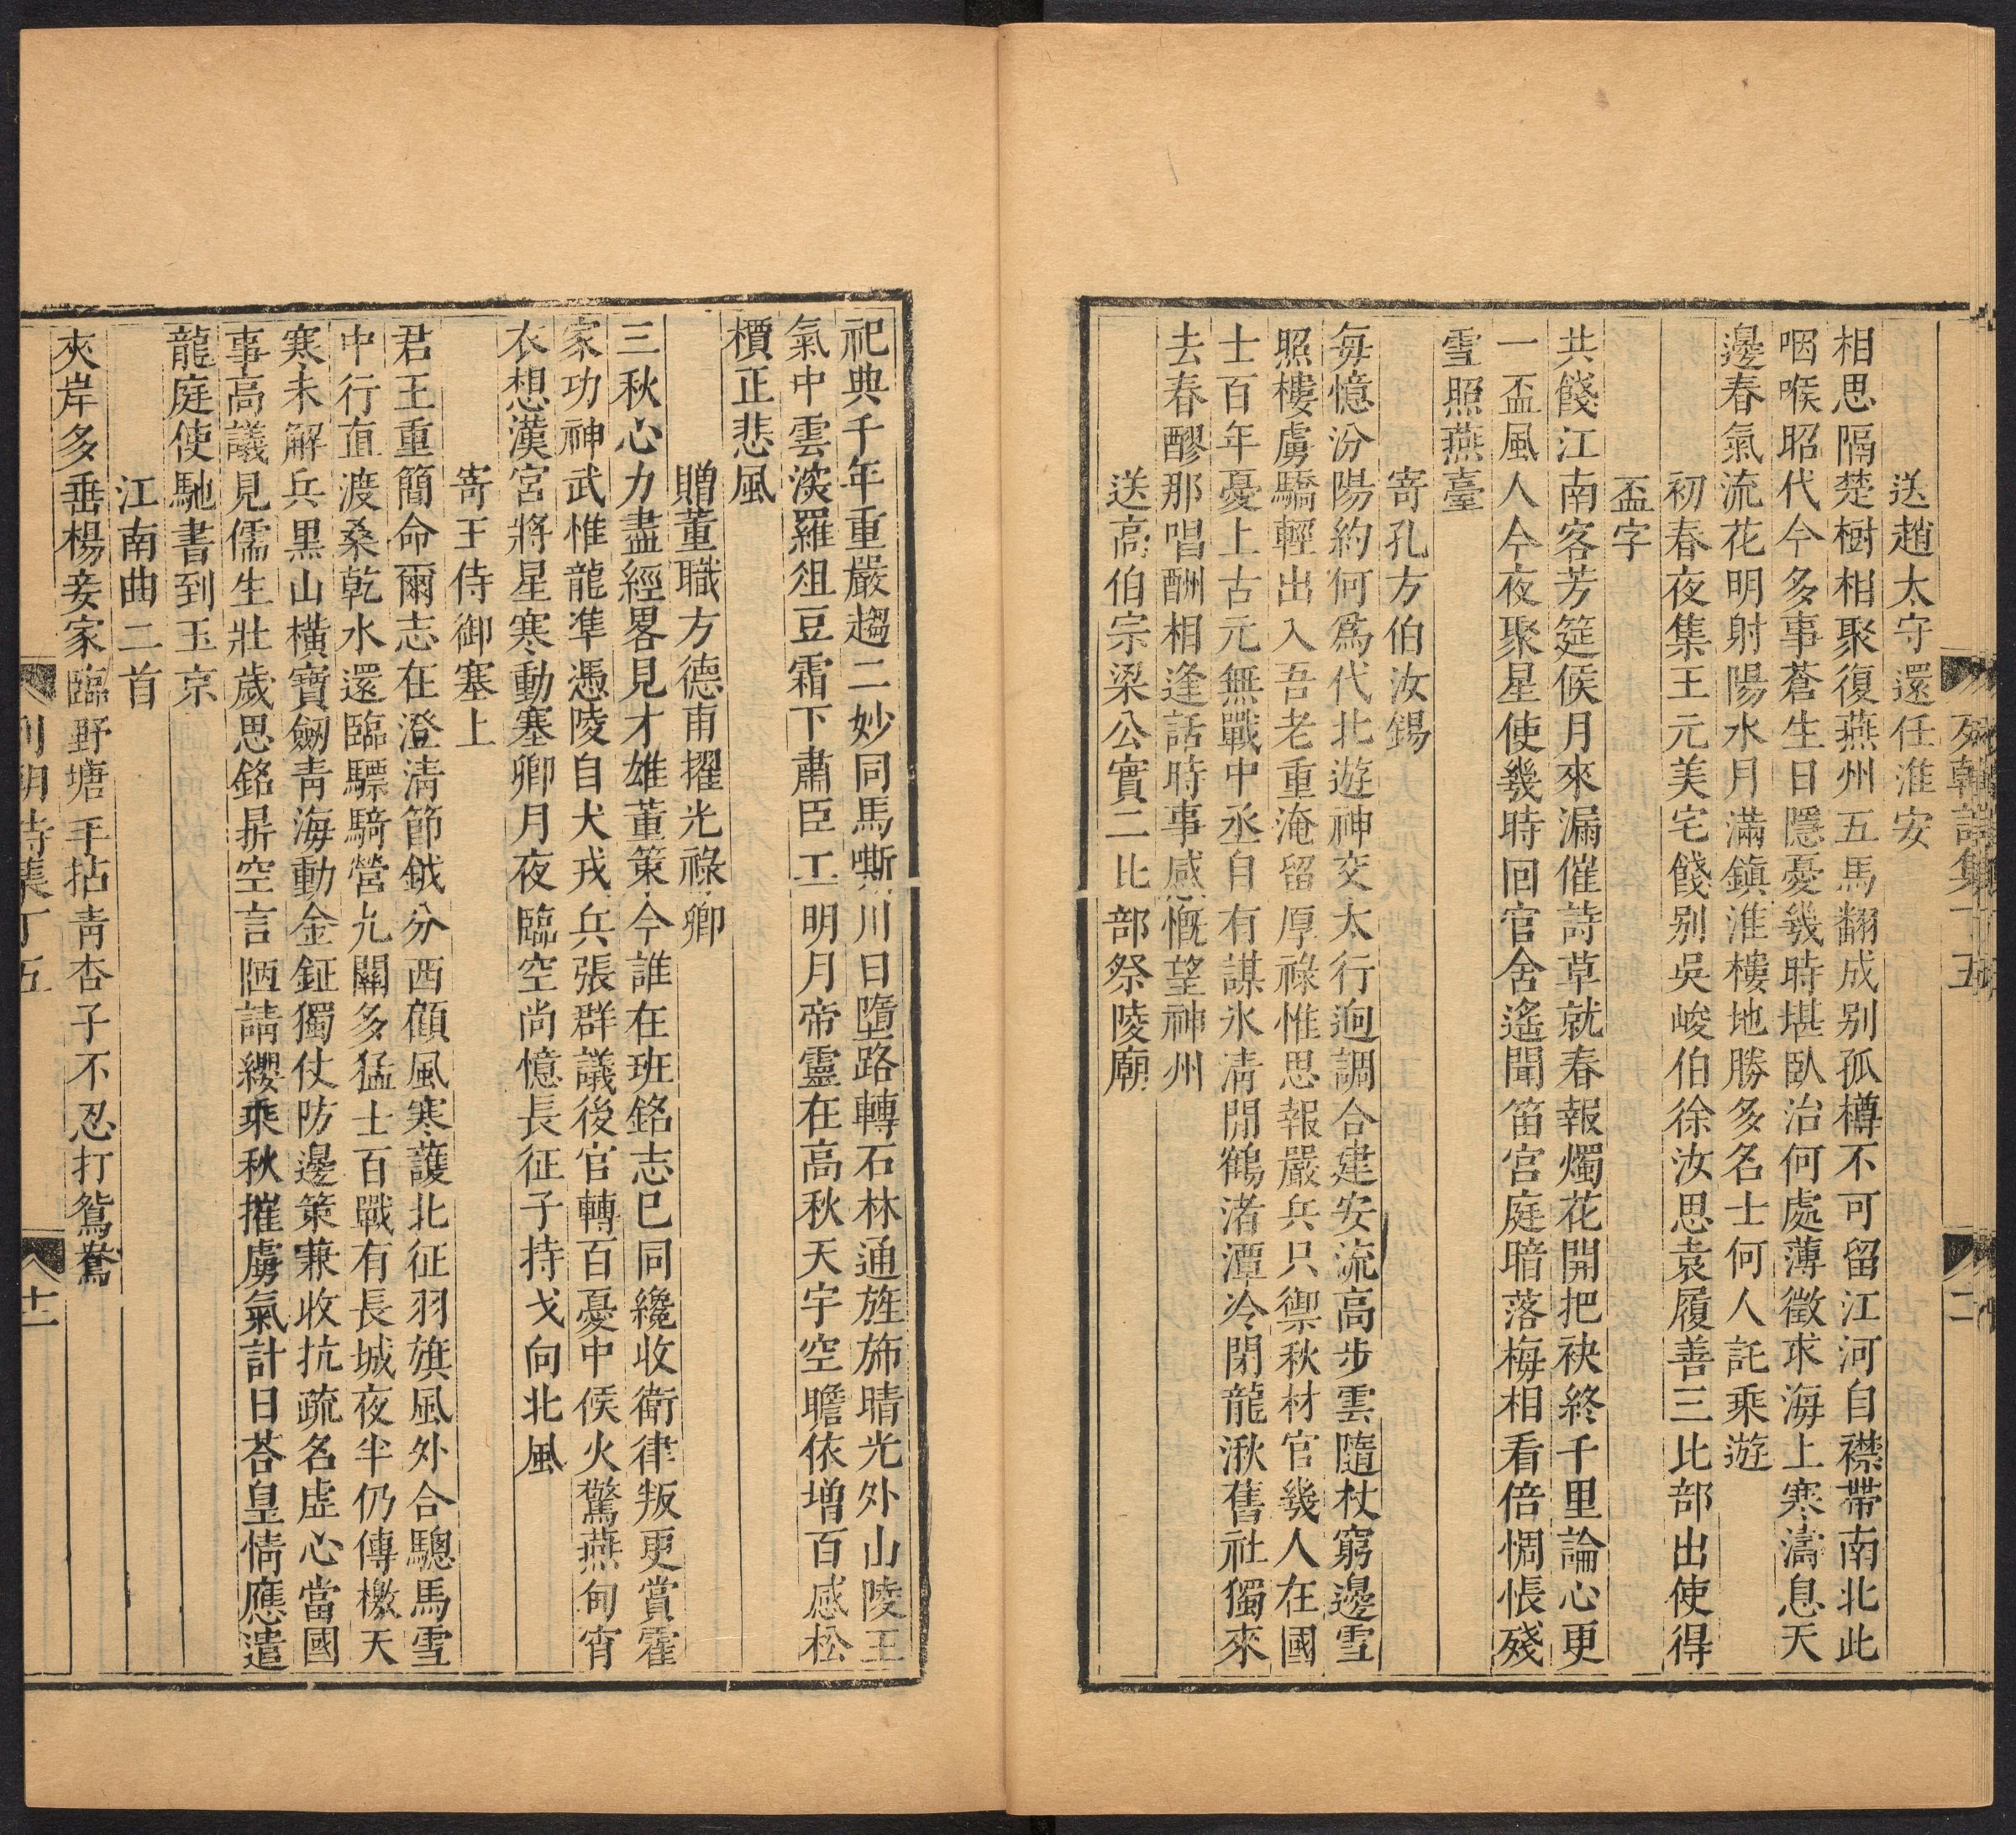 送趙太守還任淮安
相思隔楚樹相聚復燕州五馬翻成别孤樽不可留江河自襟帶南北此
咽喉昭代今多事蒼生日隱憂幾時堪臥治何處薄徵求海上寒濤息天
邊春氣流花明射陽水月滿鎮淮樓地勝多名士何人託乘遊
初春夜集王元美宅餞别吳峻伯徐汝思袁履善三比部出使得
盃字
共餞江南客芳筵候月來漏催詩草就春報燭花開把袂終千里論心更
一盃風人今夜聚星使幾時回官舍遙聞笛宮庭暗落梅相看倍惆悵殘
雪照燕臺
寄孔方伯汝錫
毎憶汾陽約何爲代北遊神交太行迥調合建安流高步雲隨杖窮邊雪
照樓虜驕輕出入吾老重淹留厚祿惟思報嚴兵只禦秋材官幾人在國
士百年憂上古元無戰中丞自有謀氷淸閒鶴渚潭冷閉龍湫舊社獨來
去春醪那唱酬相逢話時事感慨望神州
送高伯宗梁公實二比部祭陵廟
祀典千年重嚴趨二妙同馬嘶川日墮路轉石林通旌斾晴光外山陵王
氣中雲滋羅俎豆霜下肅臣工明月帝靈在高秋天宇空瞻依增百感松
檟正悲風
贈董職方德甫擢光祿卿
三秋心力盡經畧見才雄董策今誰在班銘志已同纔收衛律叛更賞霍
家功神武惟龍準憑陵自犬戎兵張群議後官轉百憂中候火驚燕甸宵
衣想漢宮將星寒動塞卿月夜臨空尚憶長征子持戈向北風
寄王侍御塞上
君王重簡命爾志在澄淸節鉞分西顧風寒護北征羽旗風外合驄馬雪
中行直渡桑乾水還臨驃騎營九關多猛士百戰有長城夜半仍傳檄天
寒未解兵黑山橫寶劒靑海動金鉦獨仗防邊策兼收抗疏名虛心當國
事高議見儒生壯歲思銘鼎空言陋請纓乘秋摧虜氣計日荅皇情應遣
龍庭使馳書到玉京
江南曲二首
夾岸多垂楊妾家臨野塘手拈靑杏子不忍打鴛鴦
列朝詩集丁五
十二